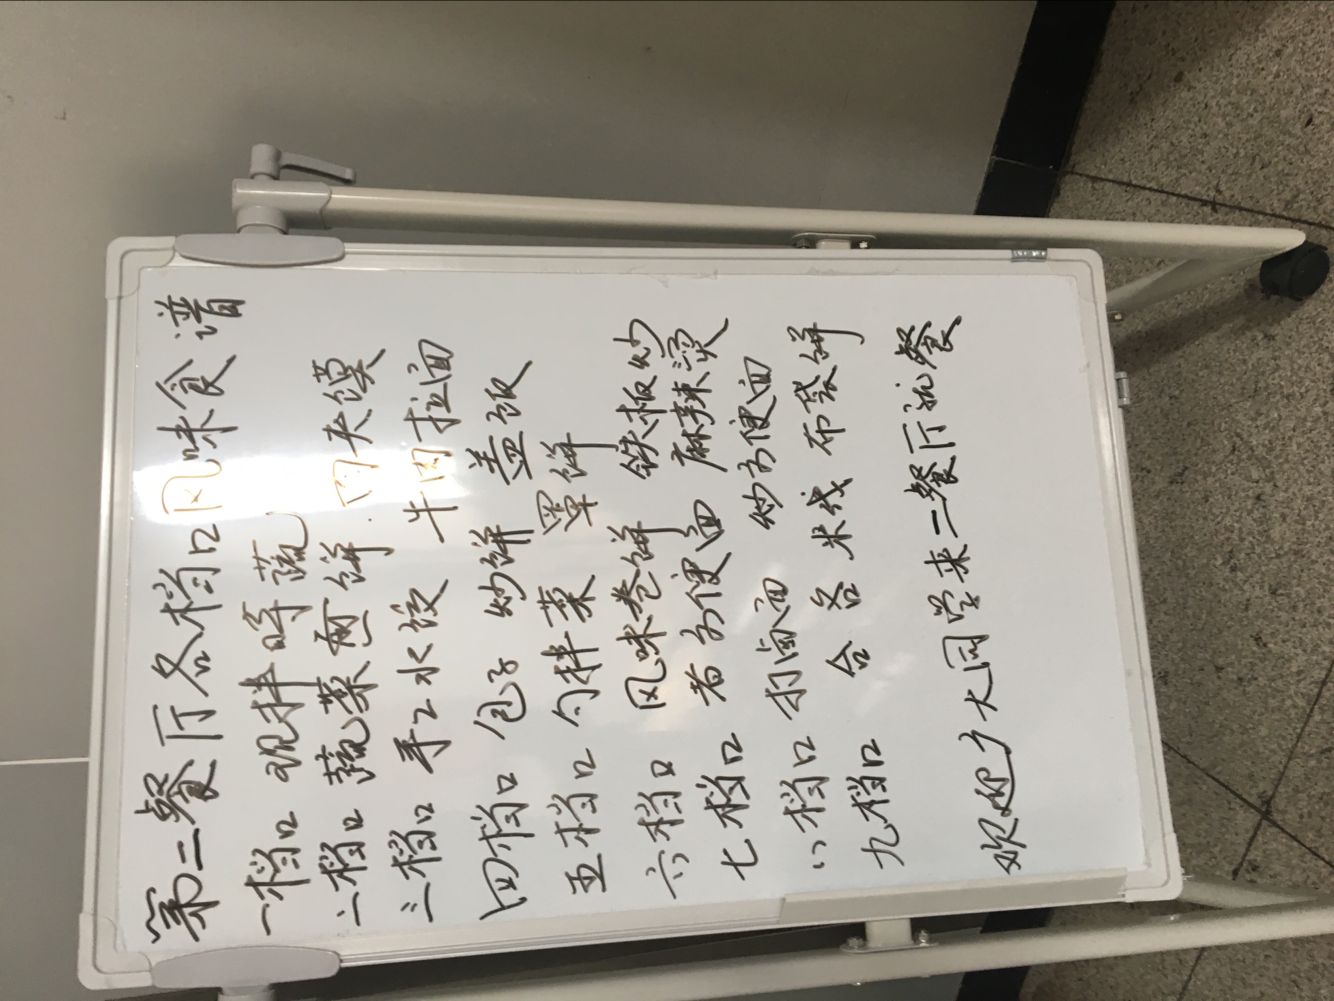 第二餐厅各档口风味食谱
一档口 现拌时蔬
二档口 蔬菜煎饼 肉夹馍
三档口 手工水饺 牛肉拉面
四档口 包子 炒饼 盖饭
五档口 勺拌菜 罩饼
六档口 风味卷饼 铁板炒
七档口 煮方便面 麻辣烫
八档口 打卤面 炒方便面
九档口 合各 米线 布袋饼
欢迎广大同学来二餐厅就餐